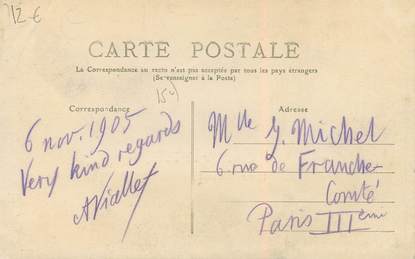 12 €
CARTE POSTALE
La Correspondance au recto n'est pas acceptée par tous les pays étrangers
(Se renseigner à la Poste)
Correspondance
6 nov. 1905
Very kind regards
AViallet
Adresse
Mlle G. Michel
6 rue de Franche
Comté
Paris IIIème